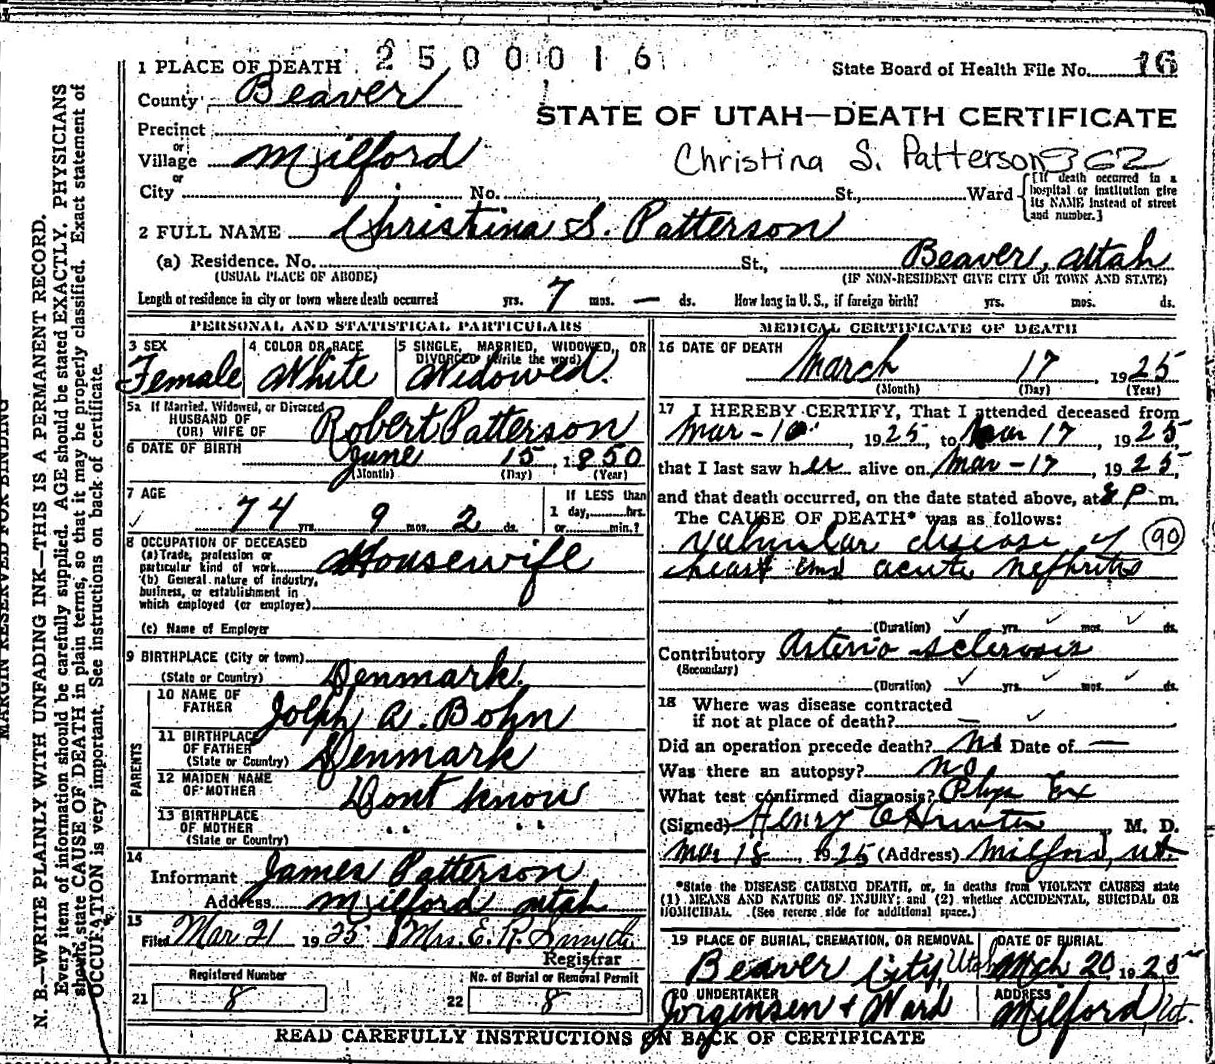 2500016
1 PLACE OF DEATH
State Board of Health File No. 16
County Beaver
STATE OF UTAH—DEATH CERTIFICATE
Precinct
or
Village Milford
Christina S. Patterson 362
or
City No. St., Ward
[If death occurred in a hospital or institution give its NAME instead of street and number.]
2 FULL NAME Christina S. Patterson
(a) Residence. No. St., Beaver, Utah
(USUAL PLACE OF ABODE) (IF NON-RESIDENT GIVE CITY OR TOWN AND STATE)
Length of residence in city or town where death occurred yrs. 7 mos. — ds. How long in U. S., if foreign birth? yrs. mos. ds.
PERSONAL AND STATISTICAL PARTICULARS
3 SEX
Female
4 COLOR OR RACE
White
5 SINGLE, MARRIED, WIDOWED, OR
DIVORCED (Write the word)
Widowed.
5a If Married, Widowed, or Divorced
HUSBAND OF
(OR) WIFE OF Robert Patterson
6 DATE OF BIRTH June 15, 1850
(Month) (Day) (Year)
7 AGE
74 yrs. 9 mos. 2 ds.
If LESS than
1 day, hrs.
or min.?
8 OCCUPATION OF DECEASED
(a) Trade, profession or
particular kind of work Housewife
(b) General nature of industry,
business, or establishment in
which employed (or employer)
(c) Name of Employer
9 BIRTHPLACE (City or town)
(State or Country) Denmark.
PARENTS
10 NAME OF
FATHER Jolph A. Bohn
11 BIRTHPLACE
OF FATHER
(State or Country) Denmark
12 MAIDEN NAME
OF MOTHER Dont know
13 BIRTHPLACE
OF MOTHER " "
(State or Country)
14
Informant James Patterson
Address Milford Utah
15
Filed Mar 21 1925 Mrs. E. R. Smyth
Registrar
Registered Number
21 8
No. of Burial or Removal Permit
22 8
MEDICAL CERTIFICATE OF DEATH
16 DATE OF DEATH
March 17, 1925
(Month) (Day) (Year)
17 I HEREBY CERTIFY, That I attended deceased from
Mar - 10, 1925, to Mar 17, 1925,
that I last saw her alive on Mar - 17, 1925,
and that death occurred, on the date stated above, at 8 P m.
The CAUSE OF DEATH* was as follows:
Valvular disease of (90)
heart and acute nephritis
(Duration) yrs. mos. ds.
Contributory Arterio sclerosis
(Secondary)
(Duration) yrs. mos. ds.
18 Where was disease contracted
if not at place of death? —
Did an operation precede death? No Date of —
Was there an autopsy? no
What test confirmed diagnosis? Phys Ex
(Signed) Henry E Hunter, M. D.
Mar 18, 1925 (Address) Milford, Ut.
*State the DISEASE CAUSING DEATH, or, in deaths from VIOLENT CAUSES state
(1) MEANS AND NATURE OF INJURY; and (2) whether ACCIDENTAL, SUICIDAL OR
HOMICIDAL. (See reverse side for additional space.)
19 PLACE OF BURIAL, CREMATION, OR REMOVAL
Beaver City, Utah
DATE OF BURIAL
Mch 20, 1925
20 UNDERTAKER
Jorgensen & Ward
ADDRESS
Milford Ut.
READ CAREFULLY INSTRUCTIONS ON BACK OF CERTIFICATE
MARGIN RESERVED FOR BINDING
N. B.—WRITE PLAINLY WITH UNFADING INK—THIS IS A PERMANENT RECORD.
Every item of information should be carefully supplied. AGE should be stated EXACTLY. PHYSICIANS
should state CAUSE OF DEATH in plain terms, so that it may be properly classified. Exact statement of
OCCUPATION is very important. See instructions on back of certificate.